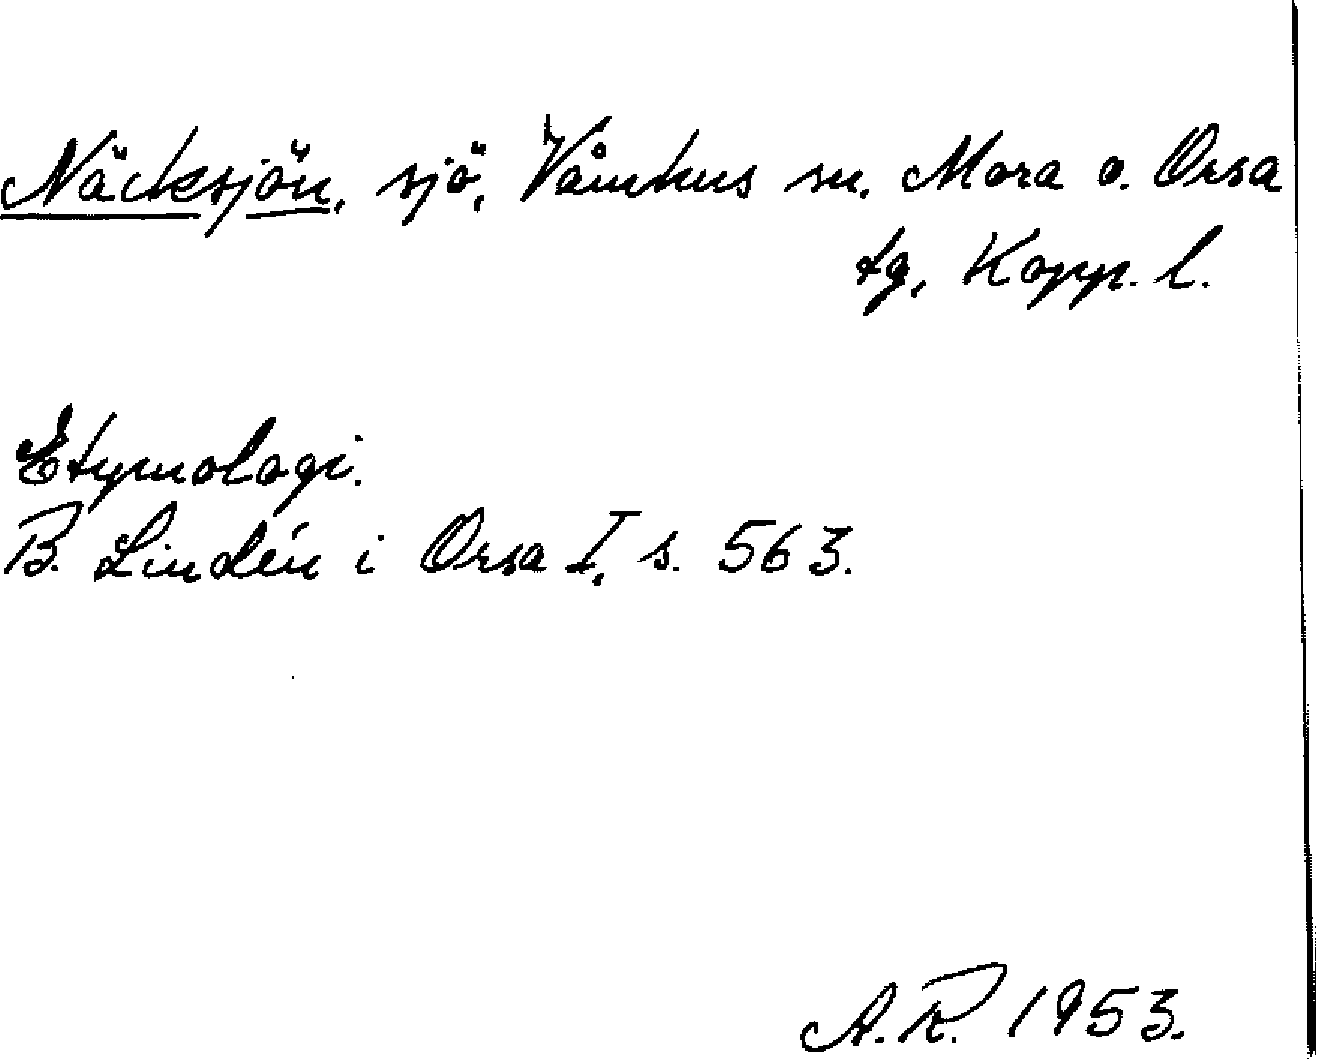 Näcksjön, sjö, Våmhus sn. Mora o. Orsa
tg, Kopp. l.
Etymologi.
B. Lindén i Orsa I, s. 563.
A.R. 1953.